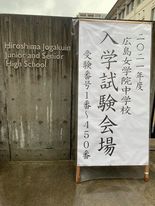 Hiroshima Jogakuin
Junior and Senior
High School
二〇二一年度
広島女学院中学校
入学試験会場
受験番号1番〜450番